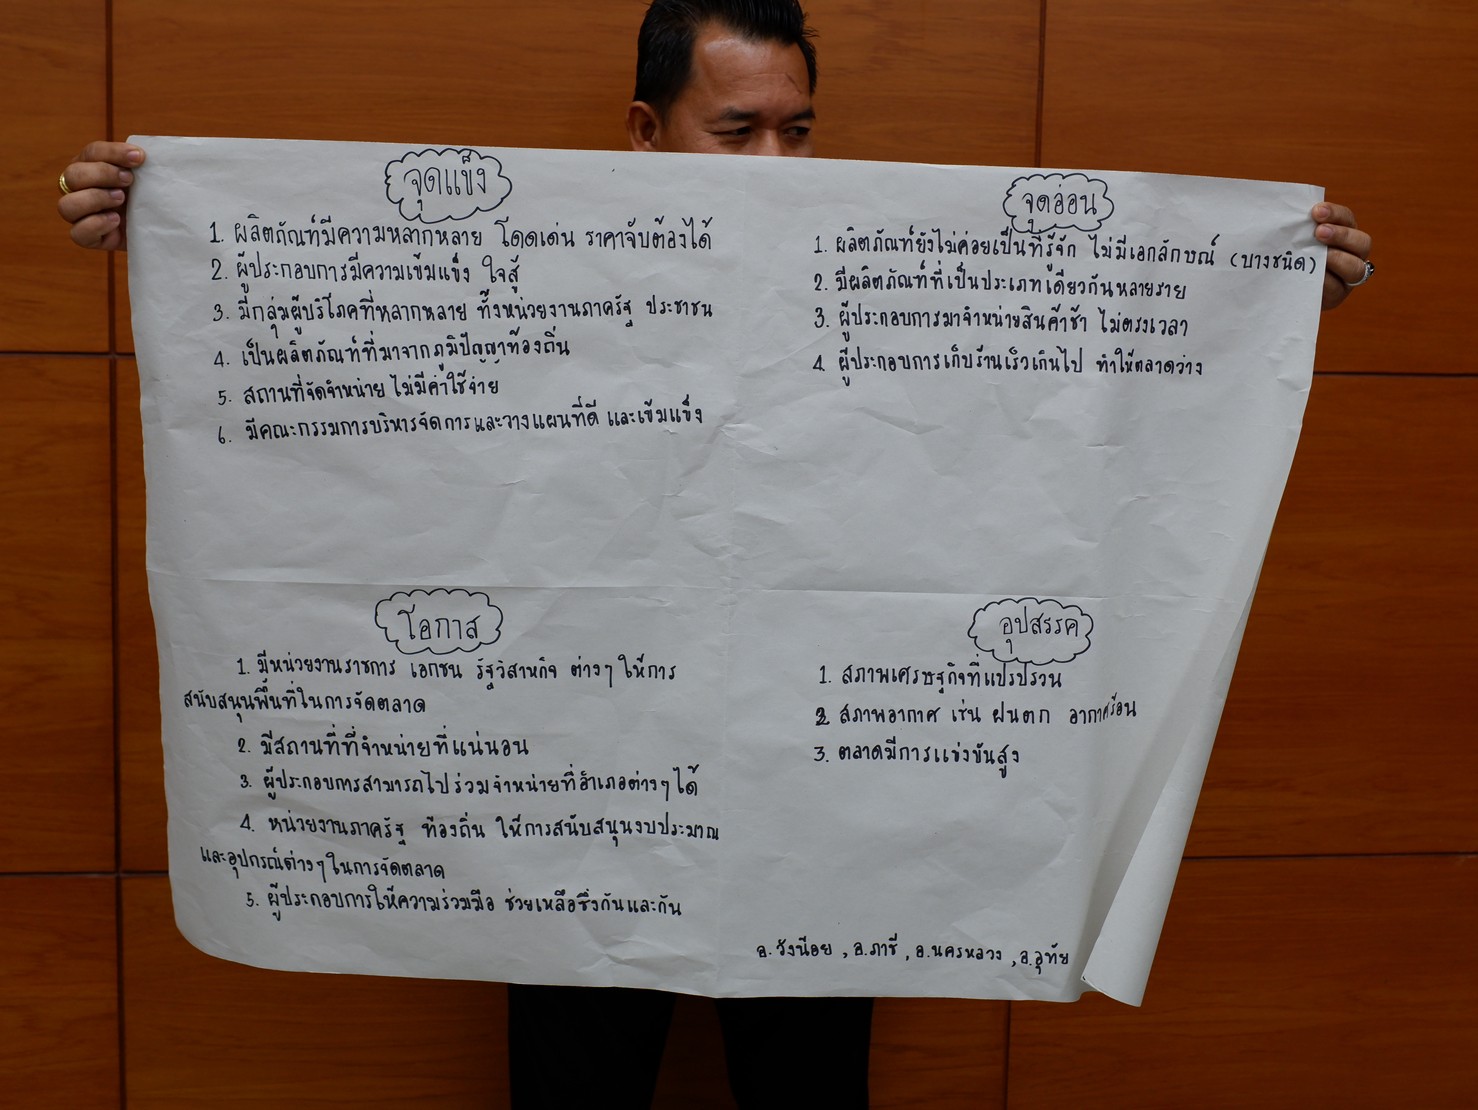 จุดแข็ง
1. ผลิตภัณฑ์มีความหลากหลาย โดดเด่น ราคาจับต้องได้
2. ผู้ประกอบการมีความเข้มแข็ง ใจสู้
3. มีกลุ่มผู้บริโภคที่หลากหลาย ทั้งหน่วยงานภาครัฐ ประชาชน
4. เป็นผลิตภัณฑ์ที่มาจากภูมิปัญญาท้องถิ่น
5. สถานที่จัดจำหน่าย ไม่มีค่าใช้จ่าย
6. มีคณะกรรมการบริหารจัดการและวางแผนที่ดี และเข้มแข็ง
จุดอ่อน
1. ผลิตภัณฑ์ยังไม่ค่อยเป็นที่รู้จัก ไม่มีเอกลักษณ์ (บางชนิด)
2. มีผลิตภัณฑ์ที่เป็นประเภทเดียวกันหลายราย
3. ผู้ประกอบการมาจำหน่ายสินค้าช้า ไม่ตรงเวลา
4. ผู้ประกอบการเก็บร้านเร็วเกินไป ทำให้ตลาดว่าง
โอกาส
1. มีหน่วยงานราชการ เอกชน รัฐวิสาหกิจ ต่างๆ ให้การ
สนับสนุนพื้นที่ในการจัดตลาด
2. มีสถานที่ที่จำหน่ายที่แน่นอน
3. ผู้ประกอบการสามารถไปร่วมจำหน่ายที่อำเภอต่างๆ ได้
4. หน่วยงานภาครัฐ ท้องถิ่น ให้การสนับสนุนงบประมาณ
และอุปกรณ์ต่างๆ ในการจัดตลาด
5. ผู้ประกอบการให้ความร่วมมือ ช่วยเหลือซึ่งกันและกัน
อุปสรรค
1. สภาพเศรษฐกิจที่แปรปรวน
2. สภาพอากาศ เช่น ฝนตก อากาศร้อน
3. ตลาดมีการแข่งขันสูง
อ.วังน้อย , อ.ภาชี , อ.นครหลวง , อ.อุทัย